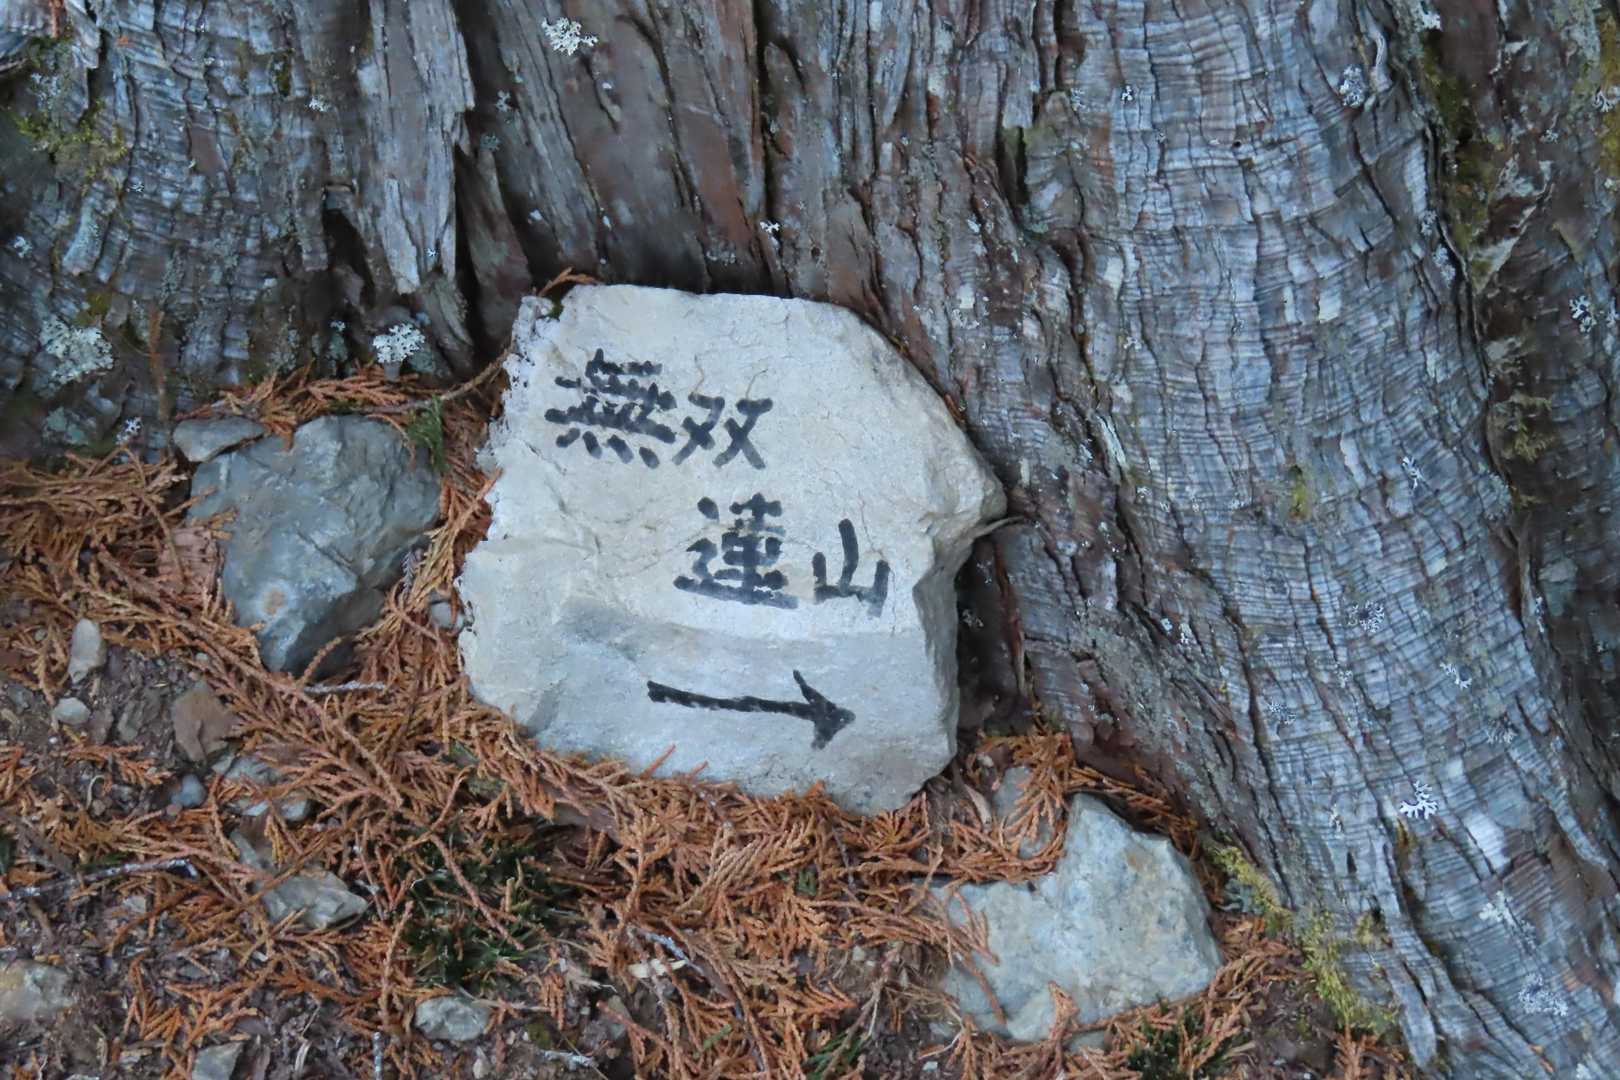 無双
連山
→